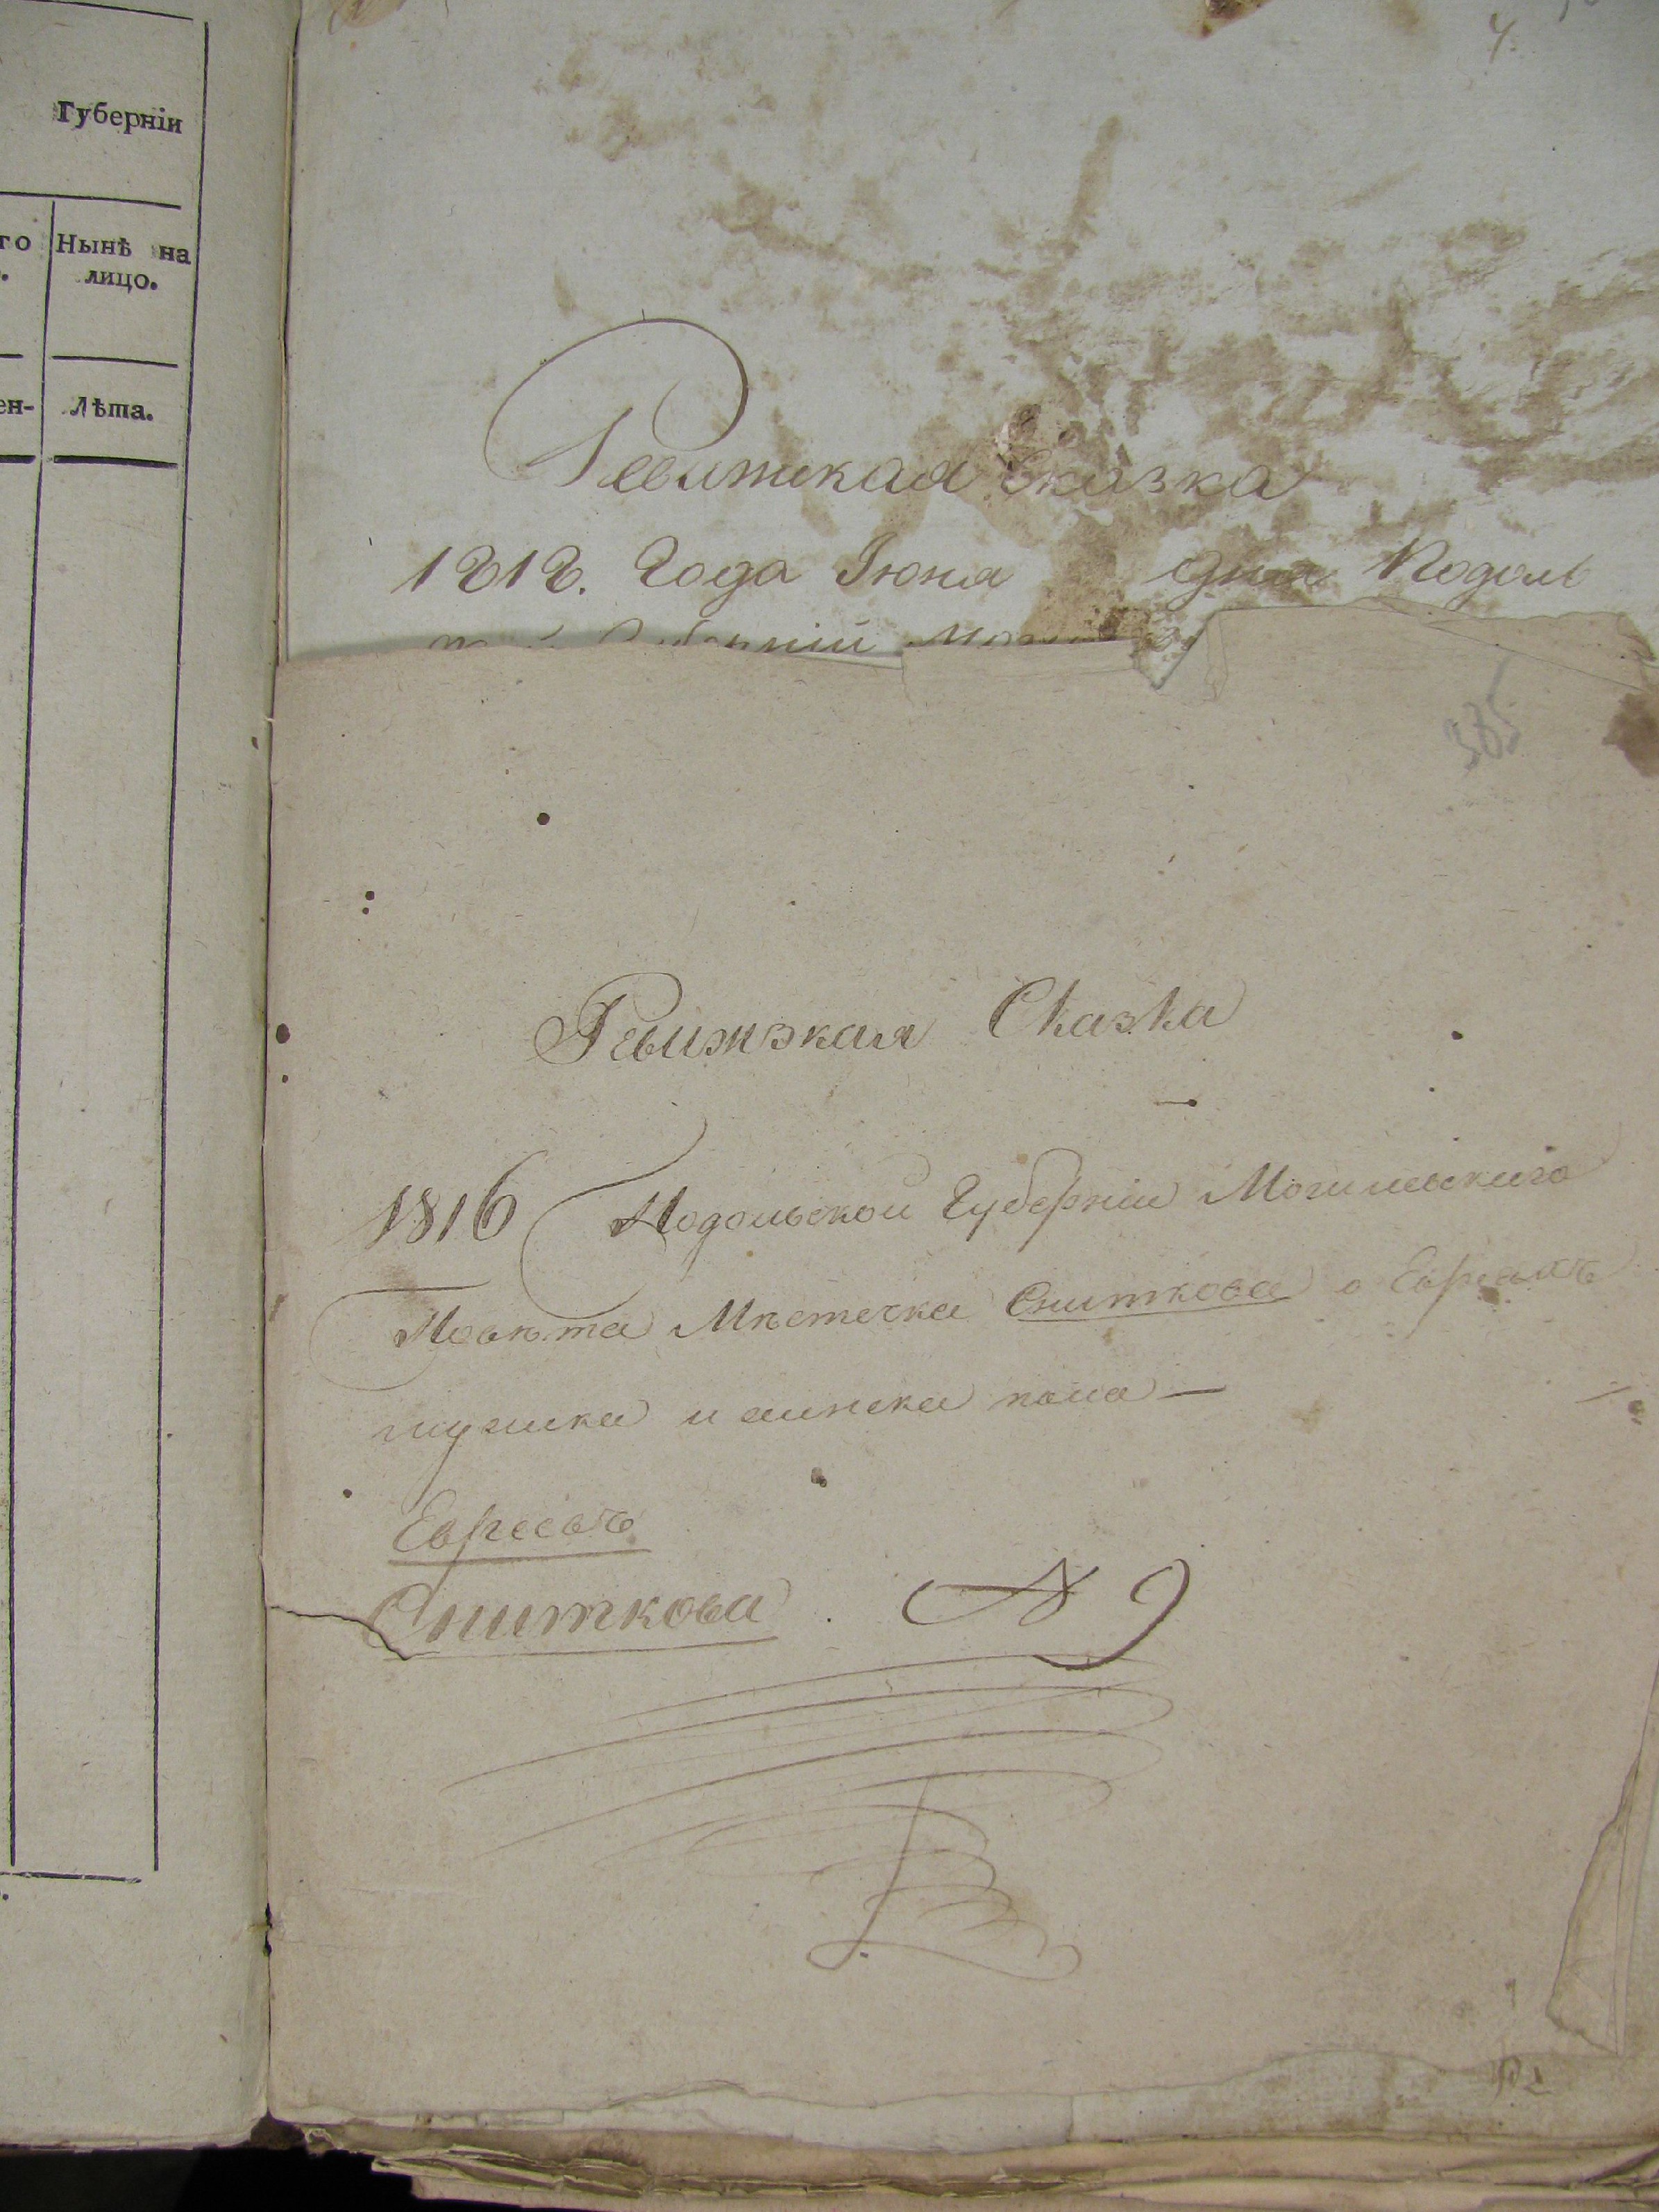 Губерніи
го Нынѣ на
лицо.
ен- Лѣта.
4.
Ревижская Сказка
1818. Года Іюня дня Подоль
385
Ревижзкая Сказка
1816 Подольской Губерніи Могилевскаго
Повѣта Мѣстечка Сниткова о Евреахъ
мужска и женска пола —
Евреевъ
Сниткова. № 9